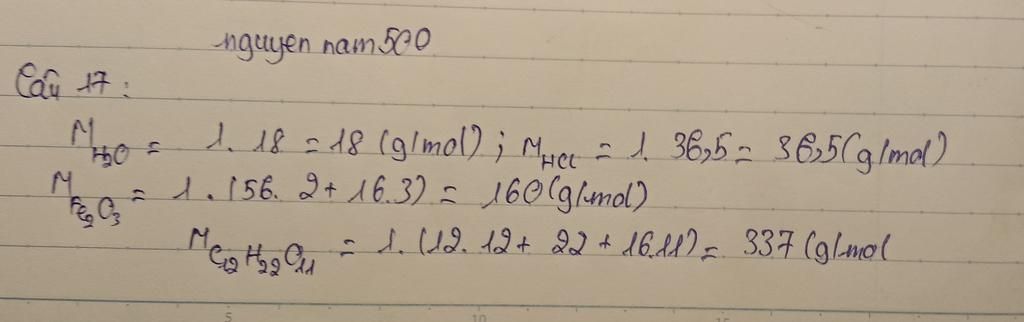 nguyen nam 500
Câu 17:
M H₂O = 1. 18 = 18 (g/mol) ; M HCl = 1. 36,5 = 36,5 (g/mol)
M Fe₂O₃ = 1. (56. 2 + 16.3) = 160 (g/mol)
M C₁₂H₂₂O₁₁ = 1. (12. 12 + 22 + 16.11) = 337 (g/mol
5 10 15